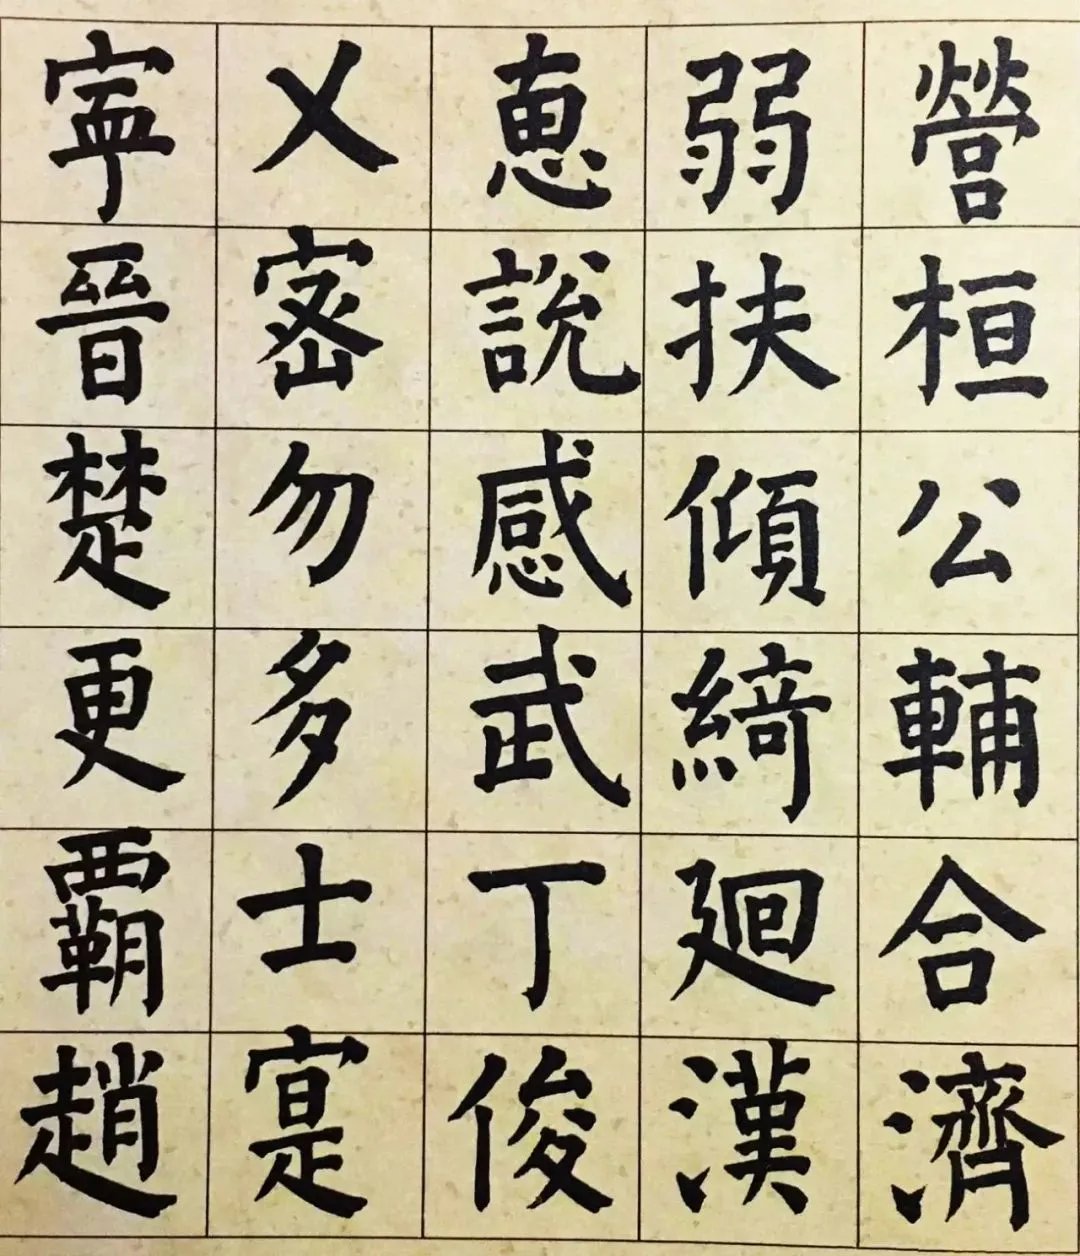 營桓公輔合濟
弱扶傾綺廻漢
恵說感武丁俊
乂宻勿多士寔
寧晉楚更覇趙